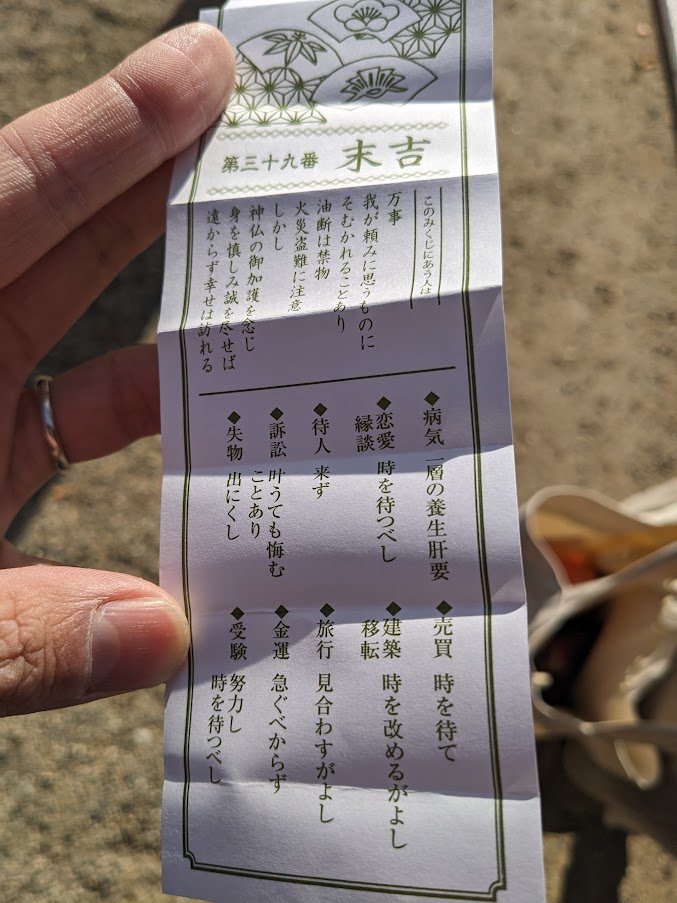 第三十九番 末吉
このみくじにあう人は
万事
我が頼みに思うものに
そむかれることあり
油断は禁物
火災盗難に注意
しかし
神仏の御加護を念じ
身を慎しみ誠を尽せば
遠からず幸せは訪れる
◆病気 一層の養生肝要
◆恋愛
縁談 時を待つべし
◆待人 来ず
◆訴訟 叶うても悔む
ことあり
◆失物 出にくし
◆売買 時を待て
◆建築
移転 時を改めるがよし
◆旅行 見合わすがよし
◆金運 急ぐべからず
◆受験 努力し
時を待つべし